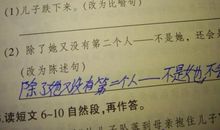 (1)儿子跌下来。(改为比喻句)
(2) 除了她又没有第二个人——不是她,还会是
(改为陈述句)
除了她又没有第二个人——不是她,不
读短文6-10自然段,再作答。
坠落到母亲抱住儿